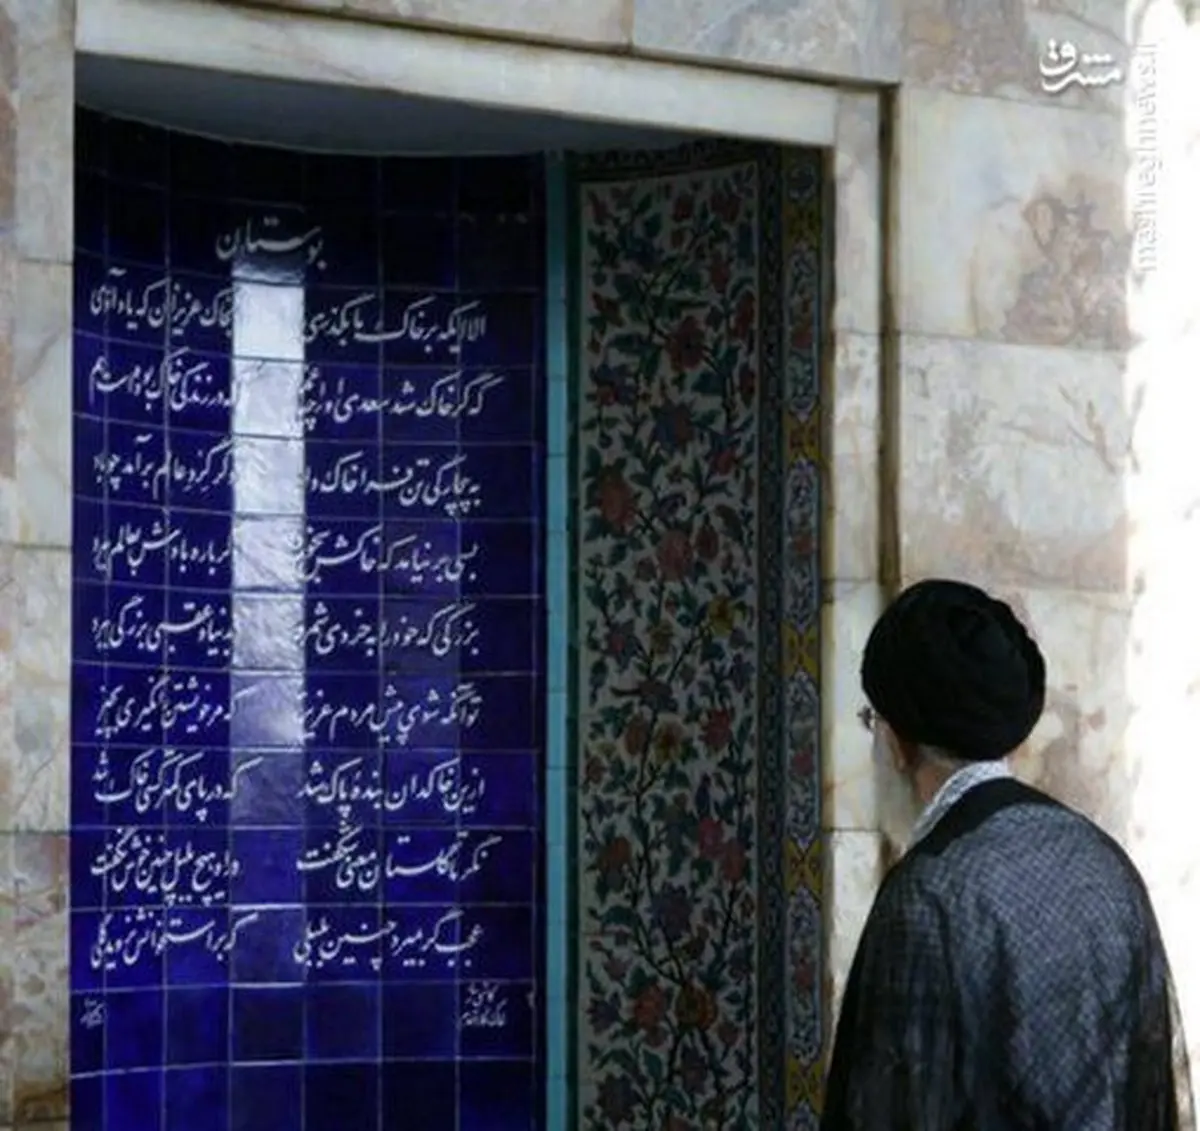 مشرق
mashreghnews.ir
بوستان
الا ایکه بر خاک ما بگذری بخاک عزیزان که یاد آوری
که گر خاک شد سعدی او را چه غم که در زندگی خاک بوده است هم
به بیچارگی تن فرا خاک داد دگر گرد عالم برآمد چو باد
بسی بر نیامد که خاکش بخورد دگر باره بادش بعالم ببرد
بزرگی که خود را به خردی شمرد بدنیا و عقبی بزرگی ببرد
تو آنگه شوی پیش مردم عزیز که مر خویشتن را نگیری بچیز
ازین خاکدان بندهٔ پاک شد که در پای کمتر کسی خاک شد
نگر تا گلستان معنی شکفت در او هیچ بلبل چنین خوش نگفت
عجب گر بمیرد چنین بلبلی که بر استخوانش نروید گلی